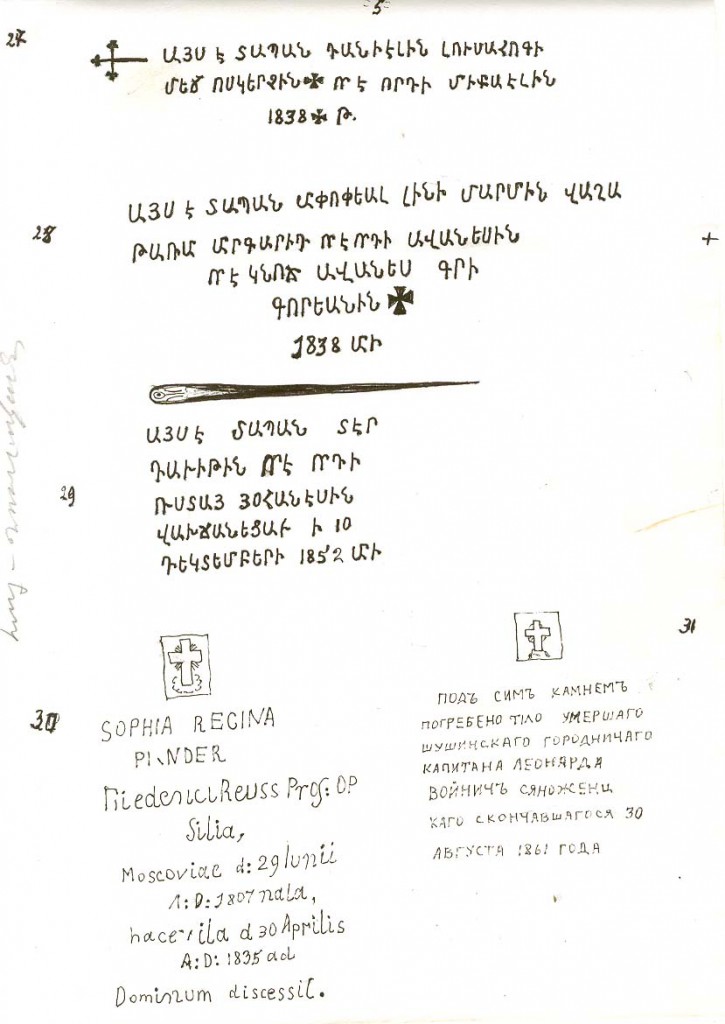 5
27
ԱՅՍ Է ՏԱՊԱՆ ԴԱՆԻԷԼԻՆ ԼՈՒՍԱՀՈԳԻ
ՄԵՋ ՈՍԿԵՐՉԻՆ Ո Է ՈՐԴԻ ՄԻՔԱԷԼԻՆ
1838 Թ.
28
ԱՅՍ Է ՏԱՊԱՆ ԱՓՈՓԵԱԼ ԼԻՆԻ ՄԱՐՄԻՆ ՎԱՂԱ
ԹԱՌԱՄ ԱՐԳԱՐԻԴ Ո Է ՈԴԻ ԱՎԱՆԵՍԻՆ
Ո Է ԿՆՈՋ ԱՎԱՆԵՍ ԳՐԻ
ԳՈՐԵԱՆԻՆ
1838 ԱՄԻ
29
ԱՅՍ Է ՏԱՊԱՆ ՏԷՐ
ԴԱՒԻԹԻՆ Ո Է ՈԴԻ
ՌՍՏԱՅ ՅՕՀԱՆԷՍԻՆ
ՎԱԽՃԱՆԵՑԱՒ Ի 10
ԴԵԿՏԵՄԲԵՐԻ 1852 ԱՄԻ
30
SOPHIA REGINA
PINDER
Prof: OP
Silia,
Moscoviae d: 29 Iunii
A: D: 1807 nata,
hacevita d 30 Aprilis
A: D: 1835 ad
Dominum discessit.
31
ПОДЪ СИМЪ КАМНЕМЪ
ПОГРЕБЕНО ТІЛО УМЕРШАГО
ШУШИНСКАГО ГОРОДНИЧАГО
КАПИТАНА ЛЕОНАРДА
ВОЙНИЧЪ СЯНОЖЕНЦ
КАГО СКОНЧАВШАГОСЯ 30
АВГУСТА 1861 ГОДА